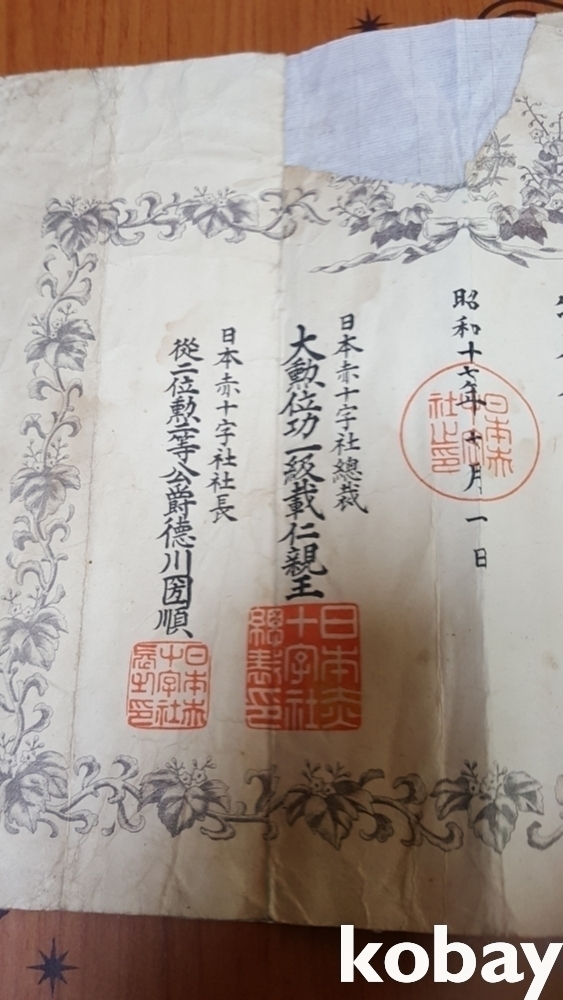 昭和十七年十月一日
日本赤十字社之印
日本赤十字社總裁
大勲位功一級載仁親王
日本赤十字社總裁印
日本赤十字社社長
從二位勲一等公爵德川圀順
日本赤十字社長之印
kobay